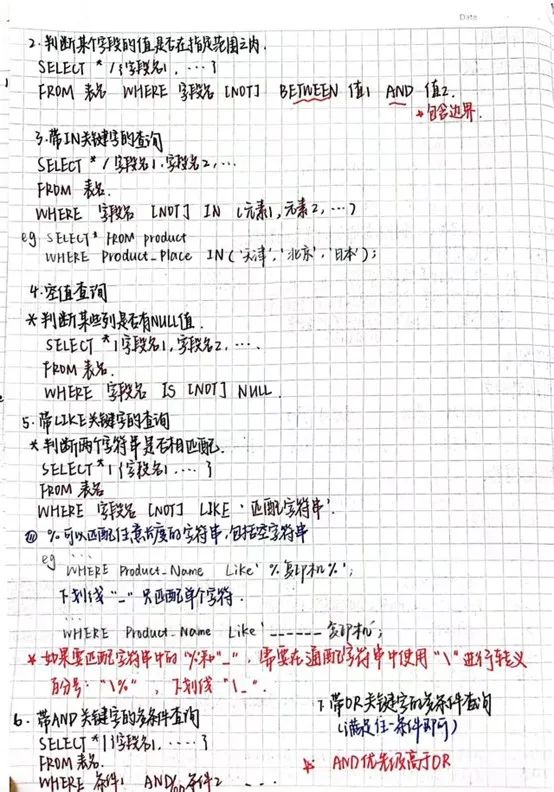 Date
2.判断某个字段的值是否在指定范围之内.
SELECT * / {字段名1, ···}
FROM 表名 WHERE 字段名 [NOT] BETWEEN 值1 AND 值2.
*包含边界.
3.带IN关键字的查询
SELECT * / 字段名1,字段名2,···
FROM 表名.
WHERE 字段名 [NOT] IN (元素1,元素2,···)
eg SELECT * FROM product
WHERE Product_Place IN('天津','北京','日本');
4.空值查询
*判断某些列是否有NULL值.
SELECT * | 字段名1,字段名2,···.
FROM 表名.
WHERE 字段名 IS [NOT] NULL.
5.带LIKE关键字的查询
*判断两个字符串是否相匹配.
SELECT * | {字段名1, ···}
FROM 表名
WHERE 字段名 [NOT] LIKE '匹配字符串'
(1) %可以匹配任意长度的字符串,包括空字符串
eg ···
WHERE Product_Name Like '%复印机%';
下划线"_"只匹配单个字符.
···
WHERE Product_Name Like '______复印机';
*如果要匹配字符串中的"%"和"_",需要在通配字符串中使用"\"进行转义
百分号:"\%",下划线"\_".
6.带AND关键字的多条件查询
SELECT * | {字段名1, ···}
FROM 表名.
WHERE 条件1 AND 条件2 ···
7.带OR关键字的多条件查询
(满足任一条件即可)
* AND优先级高于OR